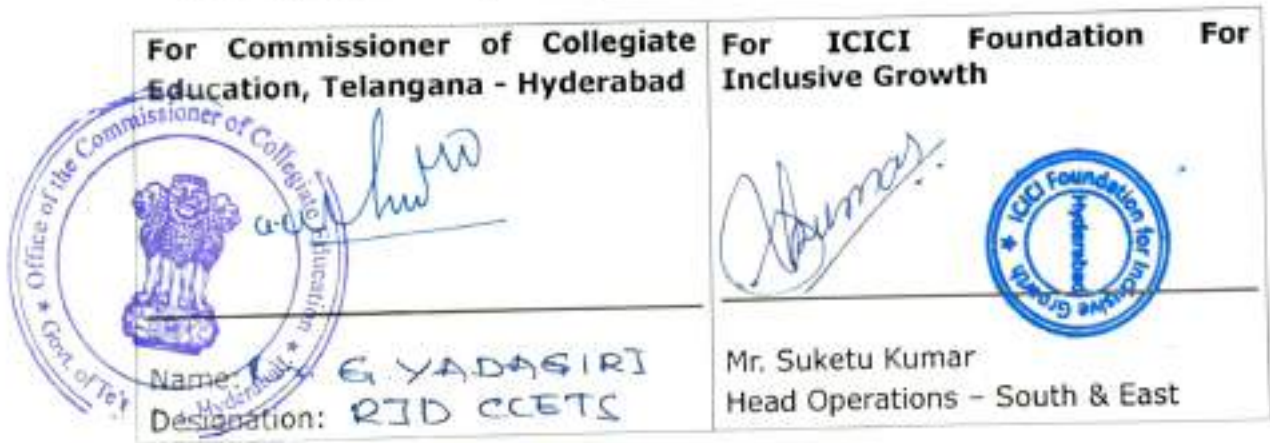 For Commissioner of Collegiate
Education, Telangana - Hyderabad
Office of the Commissioner of Collegiate Education
Hyderabad.
Name: G. YADAGIRI
Designation: RJD CCETS
For ICICI Foundation For
Inclusive Growth
ICICI Foundation for Inclusive Growth
Hyderabad
Mr. Suketu Kumar
Head Operations – South & East